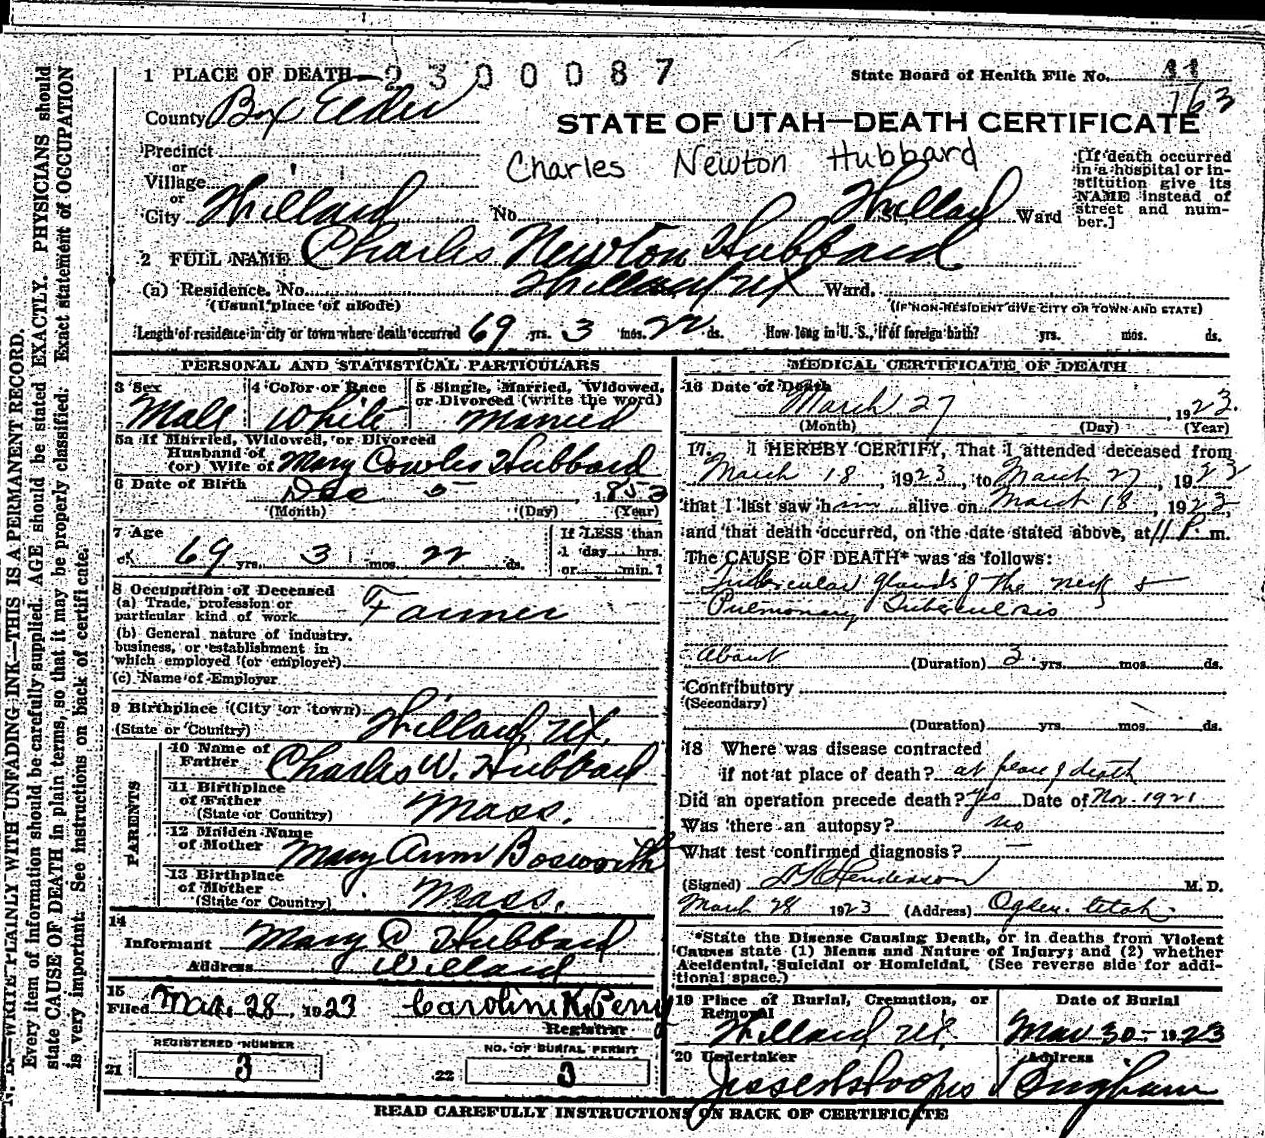 1 PLACE OF DEATH— 2300087
State Board of Health File No. 11
163
County Box Elder
STATE OF UTAH—DEATH CERTIFICATE
Precinct
or
Village
or
City Willard No. Willard Ward
Charles Newton Hubbard
[If death occurred
in a hospital or in-
stitution give its
NAME instead of
street and num-
ber.]
2 FULL NAME Charles Newton Hubbard
(a) Residence, No. Willard Ut Ward.
(Usual place of abode) (IF NON-RESIDENT GIVE CITY OR TOWN AND STATE)
Length of residence in city or town where death occurred 69 yrs. 3 mos. 22 ds. How long in U. S., if of foreign birth? yrs. mos. ds.
PERSONAL AND STATISTICAL PARTICULARS
3 Sex Male
4 Color or Race White
5 Single, Married, Widowed,
or Divorced (write the word)
Married
5a If Married, Widowed, or Divorced
Husband of
(or) Wife of Mary Cowles Hubbard
6 Date of Birth Dec 5, 1853
(Month) (Day) (Year)
7 Age
69 yrs. 3 mos. 22 ds.
If LESS than
1 day hrs.
or min.?
8 Occupation of Deceased
(a) Trade, profession or
particular kind of work Farmer
(b) General nature of industry,
business, or establishment in
which employed (or employer)
(c) Name of Employer
9 Birthplace (City or town)
(State or Country) Willard, Ut.
PARENTS
10 Name of
Father Charles W. Hubbard
11 Birthplace
of Father
(State or Country) Mass.
12 Maiden Name
of Mother Mary Ann Bosworth
13 Birthplace
of Mother
(State or Country) Mass.
14
Informant Mary C Hubbard
Address Willard
15
Filed Mar. 28, 1923 Caroline K. Perry
Registrar
21 REGISTERED NUMBER
3
22 NO. OF BURIAL PERMIT
3
MEDICAL CERTIFICATE OF DEATH
16 Date of Death
March 27, 1923.
(Month) (Day) (Year)
17. I HEREBY CERTIFY, That I attended deceased from
March 18, 1923, to March 27, 1923
that I last saw him alive on March 18, 1923,
and that death occurred, on the date stated above, at 11 P. m.
The CAUSE OF DEATH* was as follows:
Tubercular glands of the neck &
Pulmonary Tuberculosis
About (Duration) 3 yrs. mos. ds.
Contributory
(Secondary)
(Duration) yrs. mos. ds.
18 Where was disease contracted
if not at place of death? at place of death
Did an operation precede death? yes Date of Nov. 1921
Was there an autopsy? no
What test confirmed diagnosis? —
(Signed) Henderson M. D.
March 28 1923 (Address) Ogden. Utah.
*State the Disease Causing Death, or in deaths from Violent
Causes state (1) Means and Nature of Injury; and (2) whether
Accidental, Suicidal or Homicidal. (See reverse side for addi-
tional space.)
19 Place of Burial, Cremation, or
Removal
Willard Ut.
Date of Burial
Mar 30 - 1923
20 Undertaker
Address
Brigham
READ CAREFULLY INSTRUCTIONS ON BACK OF CERTIFICATE
N. B.—WRITE PLAINLY WITH UNFADING INK—THIS IS A PERMANENT RECORD.
Every item of information should be carefully supplied. AGE should be stated EXACTLY. PHYSICIANS should
state CAUSE OF DEATH in plain terms, so that it may be properly classified. Exact statement of OCCUPATION
is very important. See instructions on back of certificate.